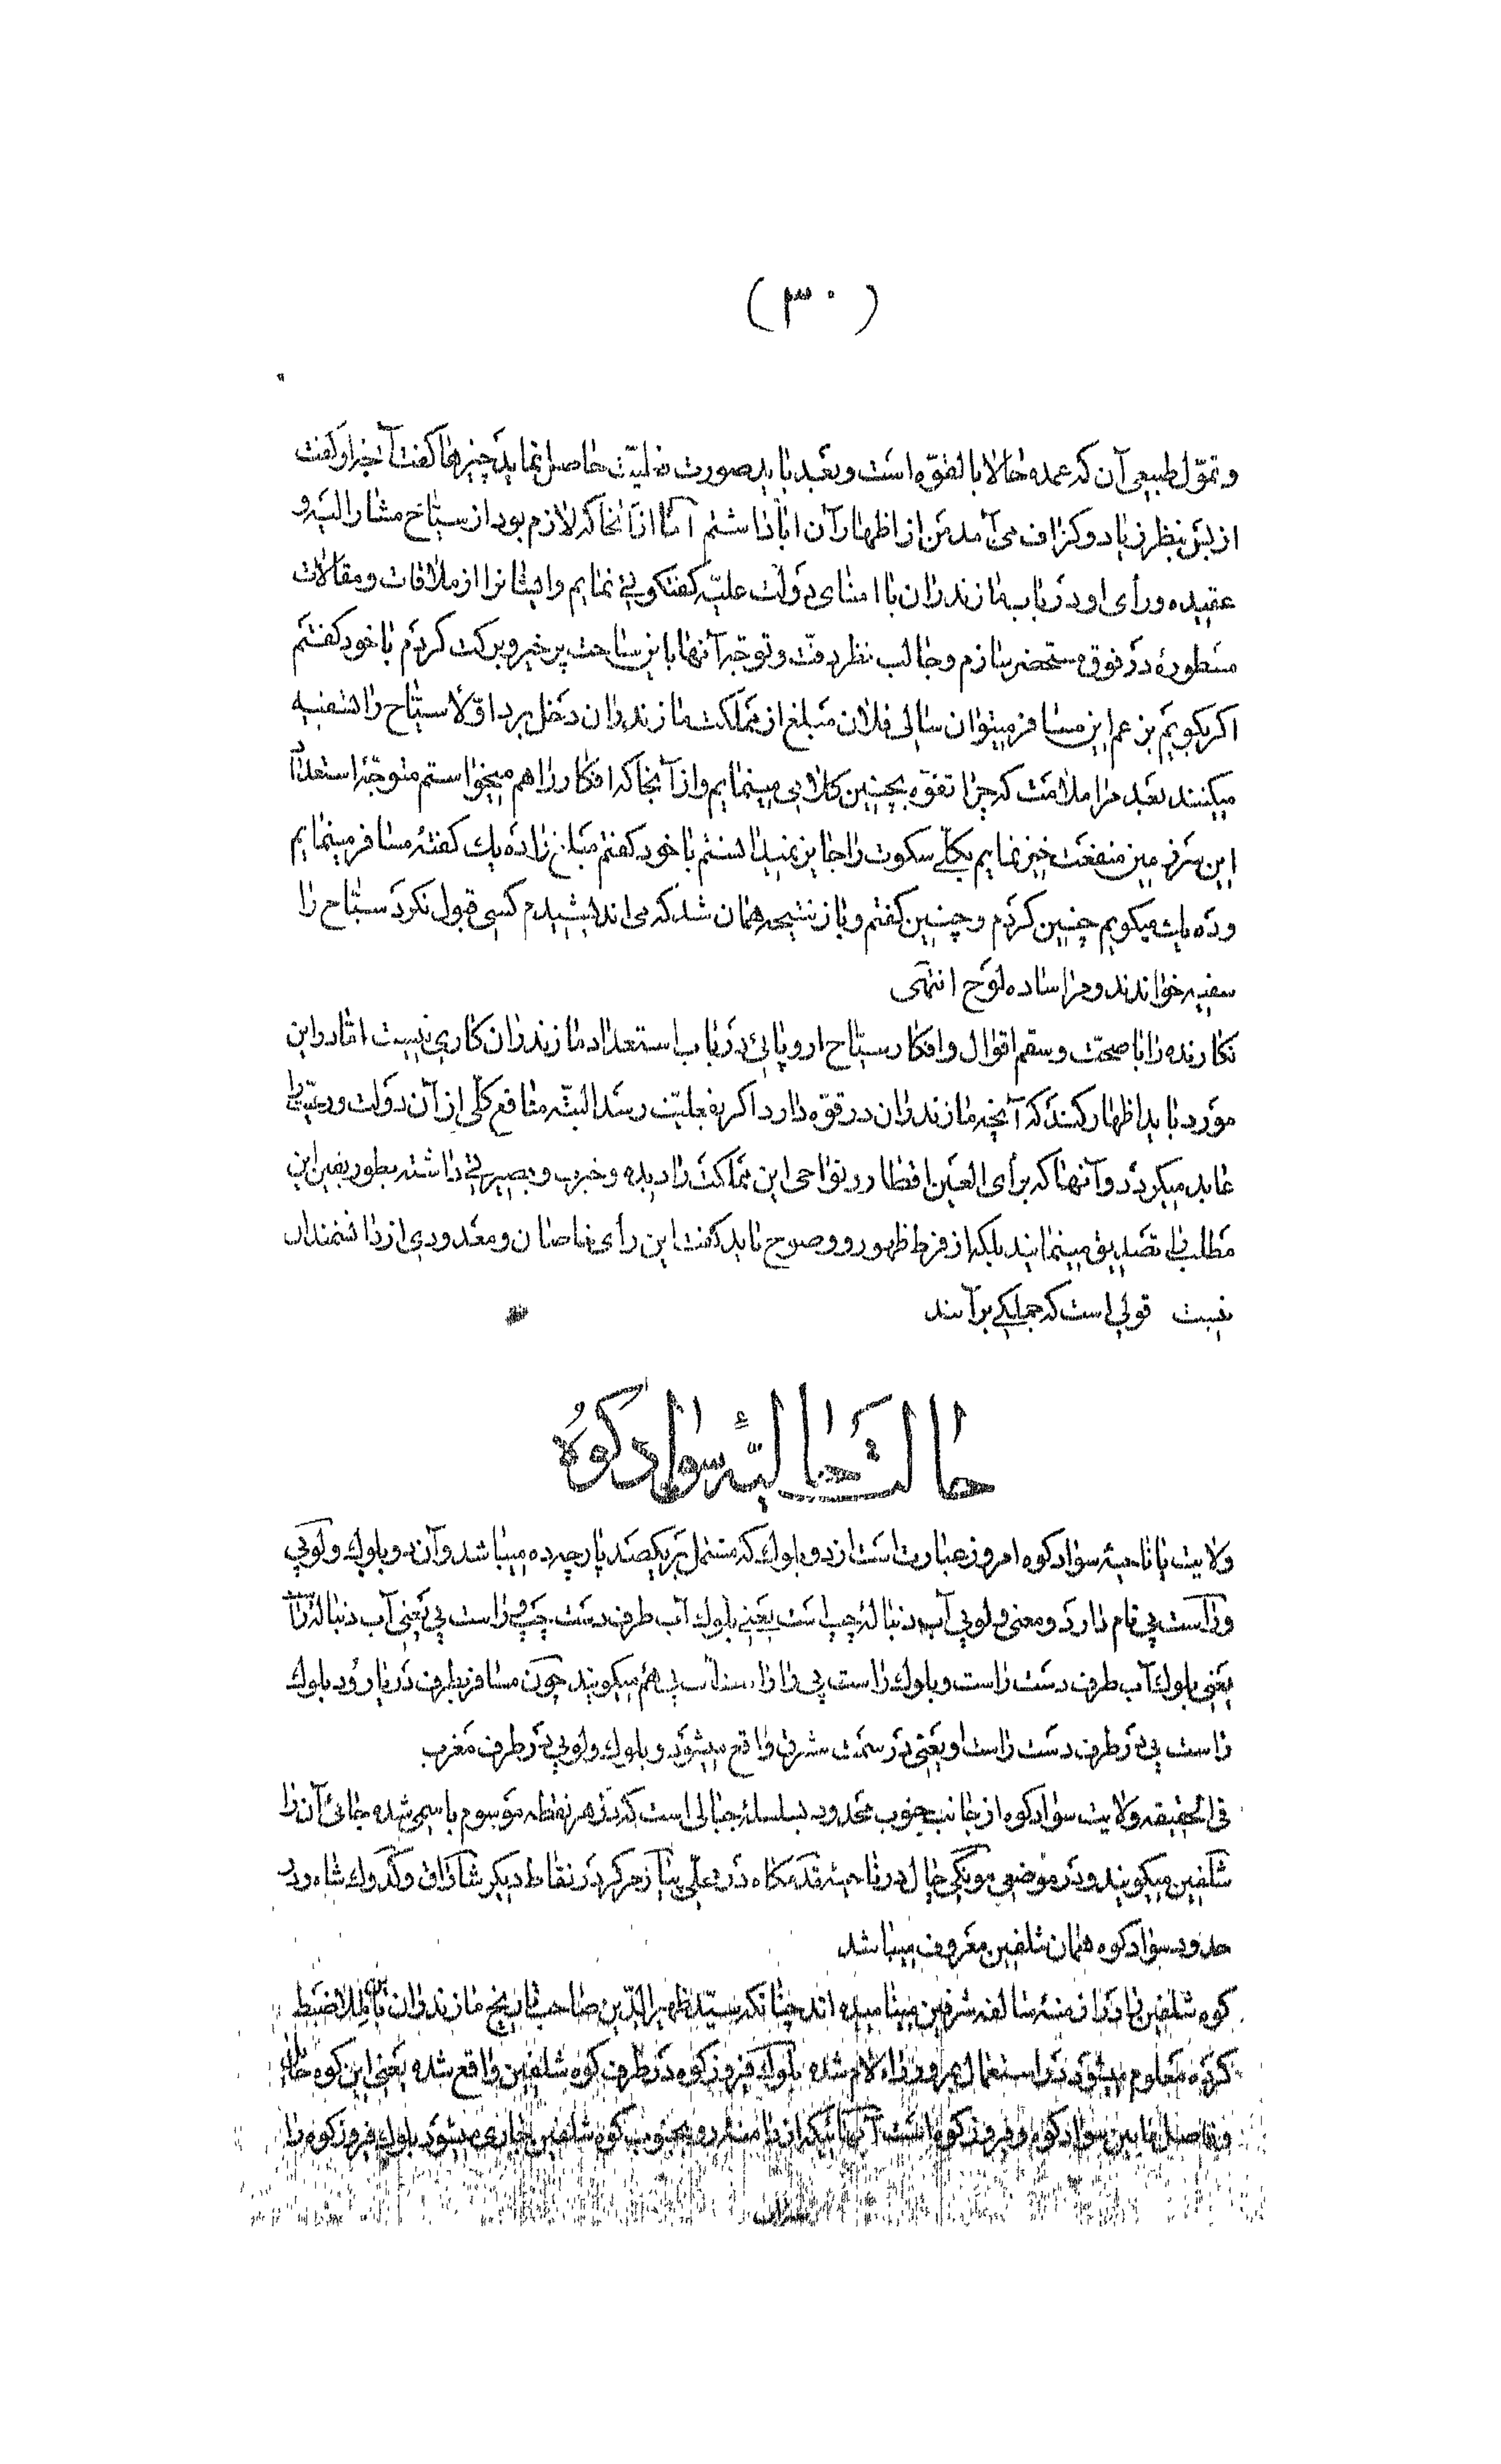 (۳۰)
و تموّل طبیعی آن که عمده حالا بالقوّه است و بعد باید صورت فعلیّت حاصل نماید چیزها گفت آنچه او گفت
از بس بنظر زیاد و گزاف می‌آمد من از اظهار آن ابا داشتم امّا از آنجا که لازم بود از سیّاح مشار الیه و
عقیده و رأی او در باب مازندران با امنای دولت علیّه گفتگویی نمایم و ایشانرا از ملاقات و مقالات
مسطورهٔ در فوق مستحضر سازم و جالب نظر دقّت و توجّه آنها باین ساحت پر خیر و برکت کردم با خود گفتم
اگر بگویم بزعم این مسافر میتوان سالی فلان مبلغ از مملکت مازندران دخل برد اوّلا سیّاح را سفیه
میکنند بعد مرا ملامت که چرا تفوّه بچنین کلامی مینمایم و از آنجا که افکار را هم میخواستم متوجّه استعداد
این سرزمین منفعت خیز نمایم بکلّی سکوت را جایز نمیدانستم با خود گفتم مبلغ را ده یک گفتهٔ مسافر مینمایم
و ده یک میگویم چنین کردم و چنین گفتم و باز نتیجه همان شد که می‌اندیشیدم کسی قبول نکرد سیّاح را
سفیه خواندند و مرا ساده لوح انتهی
نگارنده را با صحّت و سقم اقوال و افکار سیّاح اروپائی در باب استعداد مازندران کاری نیست امّا در این
مورد باید اظهار کند که آنچه مازندران در قوّه دارد اگر بفعلیّت رسد البتّه منافع کلّی از آن دولت و رعیّت را
عاید میگردد و آنها که برأی العین اقطار و نواحی این مملکت را دیده و خبرت و بصیرتی داشته بطور یقین این
مطلب را تصدیق مینمایند بلکه از فرط ظهور و وضوح باید گفت این رأی خاصان و معدودی از دانشمندان
نیست قولی است که جملگی برآنند
حالت حالیّهٔ سواد کوه
ولایت یا ناحیهٔ سواد کوه امروز عبارت است از دو بلوک که مشتمل بر یکصد پارچه ده میباشد و آن دو بلوک ولوپی
و راست پی نام دارد و معنی ولوپی آب دنباله چپ است یعنی بلوک آب طرف دست چپ و راست پی یعنی آب دنباله راست
یعنی بلوک آب طرف دست راست و بلوک راست پی را راستاب پی هم میگویند چون مسافر بطرف دریا رود بلوک
راست پی در طرف دست راست او یعنی در سمت شرق واقع میشود و بلوک ولوپی در طرف مغرب
فی الحقیقه ولایت سواد کوه از جانب جنوب محدود بسلسله جبالی است که در هر نقطه موسوم باسمی شده جائی آن را
شلفین میگویند و در موضعی مونگی چال در ناحیه قدمگاه در علّی پناآزهر کر در نقاط دیگر شارق و گدوک شاه ودر
حدود سواد کوه همان شلفین معروف میباشد
کوه شلفین را در ازمنهٔ سالفه شرفین مینامیده‌اند چنانکه سیّد ظهیر الدّین صاحب تاریخ مازندران باین املا ضبط
کرده معلوم میشود در استعمال بمرور راء لام شده بلوک فیروزکوه در طرف کوه شلفین واقع شده یعنی این کوه حائل
و فاصل مابین سواد کوه و فیروزکوه است آنهائیکه از دامنه رو بجنوب کوه شلفین جاری میشود بلوک فیروزکوه را